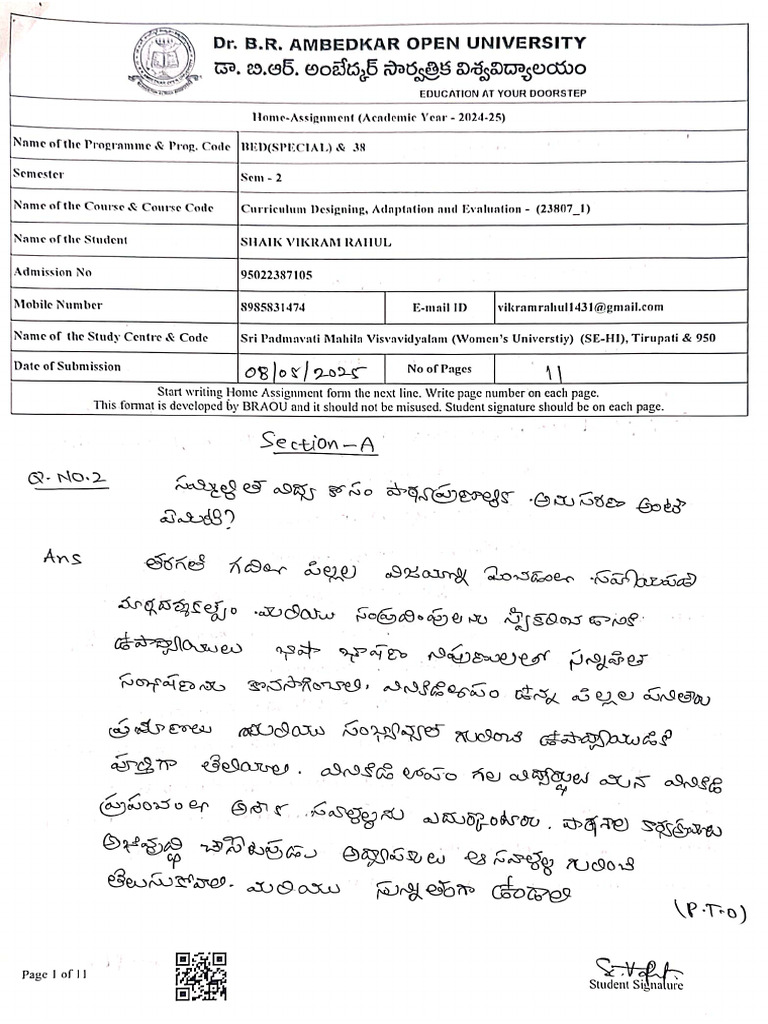 Dr. B.R. AMBEDKAR OPEN UNIVERSITY
డా. బి.ఆర్. అంబేద్కర్ సార్వత్రిక విశ్వవిద్యాలయం
EDUCATION AT YOUR DOORSTEP
Home-Assignment (Academic Year - 2024-25)
Name of the Programme & Prog. Code BED(SPECIAL) & 38
Semester Sem - 2
Name of the Course & Course Code Curriculum Designing, Adaptation and Evaluation - (23807_1)
Name of the Student SHAIK VIKRAM RAHUL
Admission No 95022387105
Mobile Number 8985831474 E-mail ID vikramrahul1431@gmail.com
Name of the Study Centre & Code Sri Padmavati Mahila Visvavidyalam (Women's Universtiy) (SE-HI), Tirupati & 950
Date of Submission 08/08/2025 No of Pages 11
Start writing Home Assignment form the next line. Write page number on each page.
This format is developed by BRAOU and it should not be misused. Student signature should be on each page.
Section-A
Q.NO.2 సమ్మిళిత విద్య కోసం పాఠ్యప్రణాళిక అనుసరణ అంటే
ఏమిటి?
Ans తరగతి గదిలో పిల్లల విజయాన్ని పెంచడంలో సహాయపడే
మార్గదర్శకత్వం మరియు సంప్రదింపులను స్వీకరించడానికి
ఉపాధ్యాయులు భాషా భాషణ నిపుణులతో సన్నిహిత
సంభాషణను కొనసాగించాలి. వినికిడిలోపం ఉన్న పిల్లల పనితీరు
ప్రమాణాలు మరియు సంభావ్యత గురించి ఉపాధ్యాయుడికి
పూర్తిగా తెలియాలి. వినికిడి లోపం గల విద్యార్థులు మన వినికిడి
ప్రపంచంలో అనేక సవాళ్లను ఎదుర్కొంటారు. పాఠశాల కార్యక్రమాలు
అభివృద్ధి చేసేటప్పుడు అధ్యాపకులు ఆ సవాళ్ల గురించి
తెలుసుకోవాలి. మరియు సున్నితంగా ఉండాలి
(P.T.O)
Page 1 of 11
Student Signature